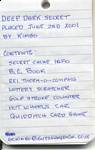 DEEP DARK SECRET
PLACED JUNE 2ND 2001
BY KIMBO
CONTENTS:
SECRET CACHE INFO
B.C. BOOK
LOTTERY SCRATCHER
GOLF STROKE COUNTER
HOT WHEELS CAR
QUIDDITCH CARD GAME